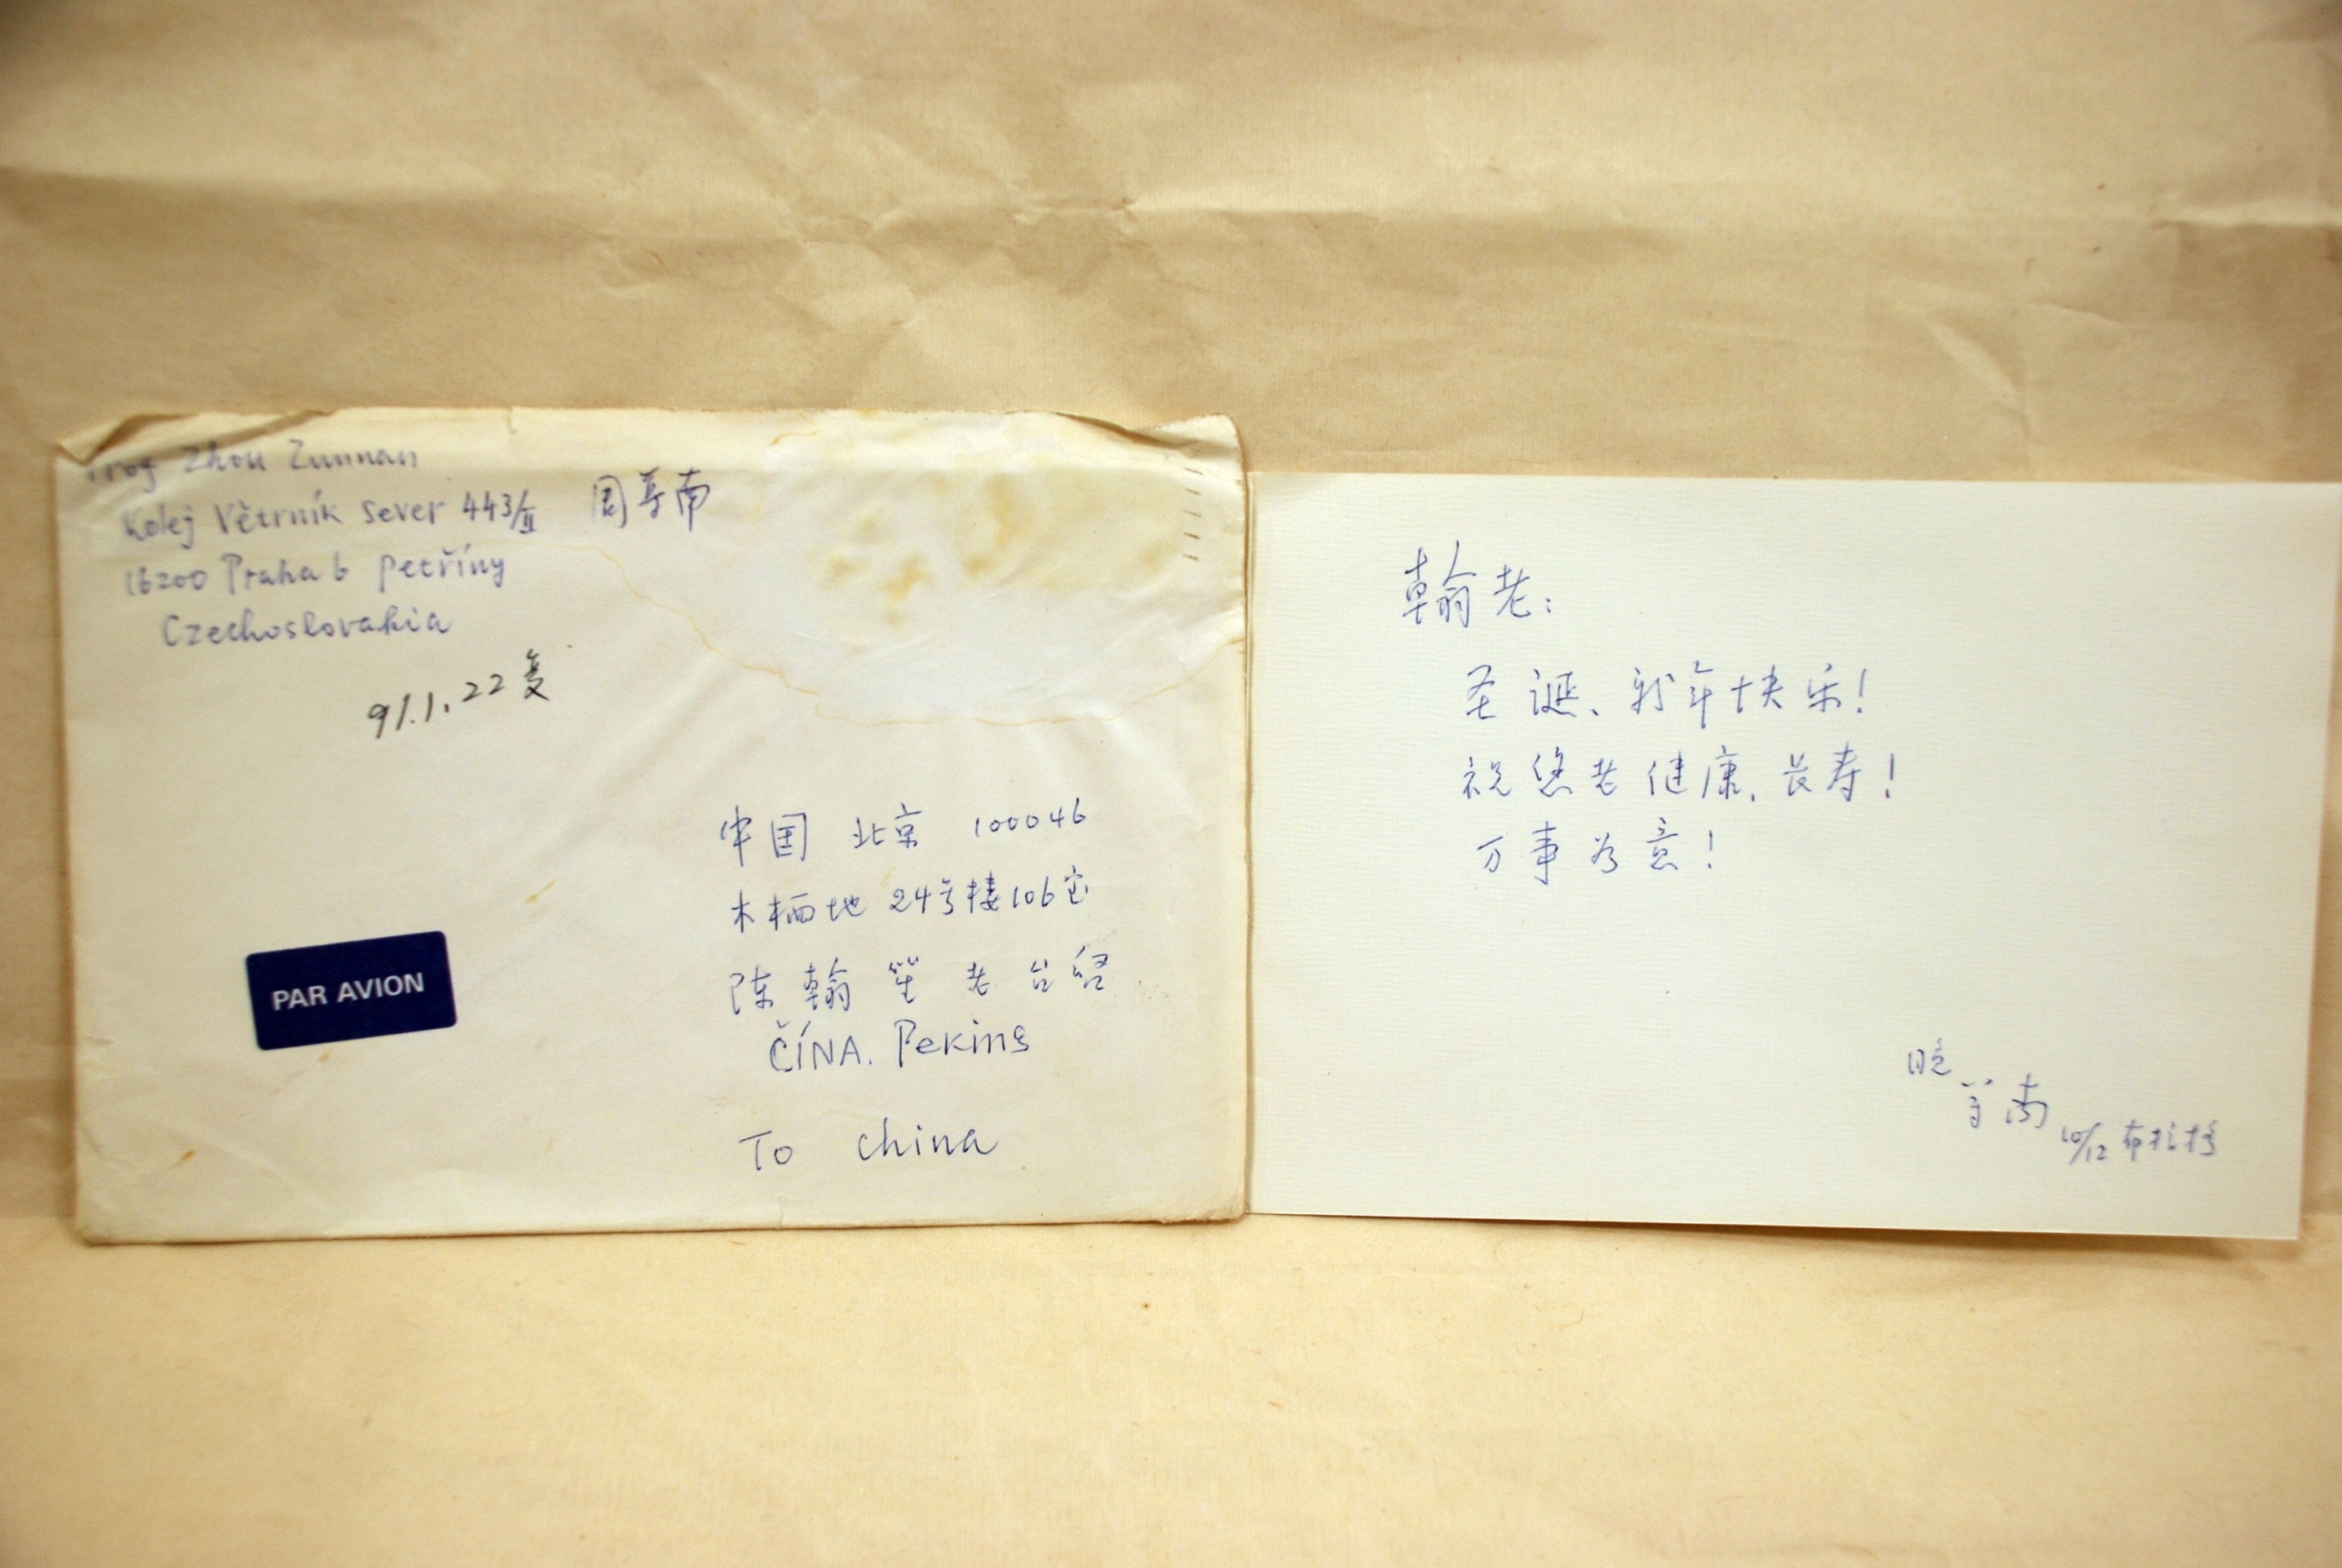 Prof Zhou Zunnan
Kolej Větrník sever 443/II 周尊南
16200 Praha 6 Petřiny
Czechoslovakia
91.1.22复
PAR AVION
中国 北京 100046
木樨地 24号楼106室
陈翰笙 老 台啟
ČÍNA. Peking
To China
翰老:
圣诞、新年快乐!
祝您老健康、长寿!
万事如意!
晚
尊南
10/12 布拉格